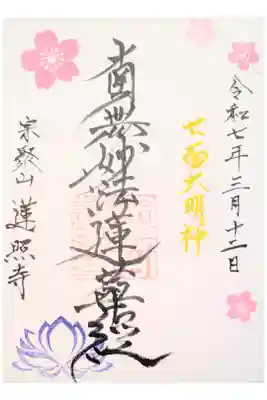 令和七年三月十二日
七面大明神
南無妙法蓮華経
宗聚山 蓮照寺